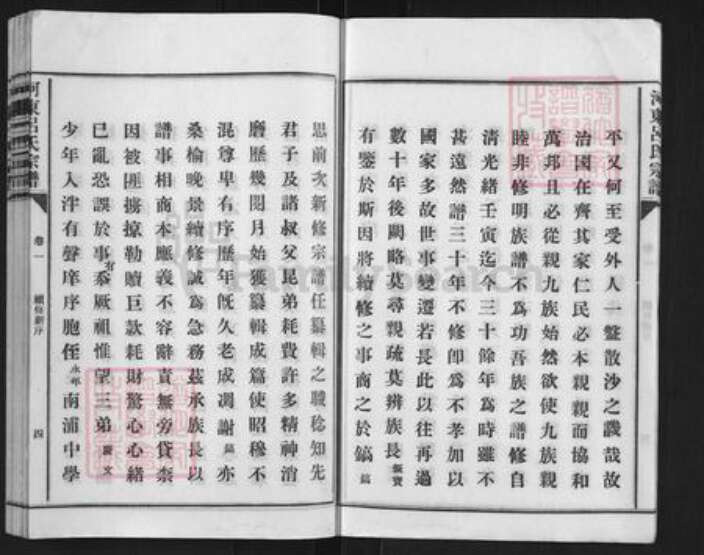 平又何至受外人一盤散沙之譏哉故
治國在齊其家仁民必本親親而協和
萬邦且必從親九族始然欲使九族親
睦非修明族譜不為功吾族之譜修自
清光緒壬寅迄今三十餘年為時雖不
甚遠然譜三十年不修卽為不孝加以
國家多故世事變遷若長此以往再過
數十年後闕略莫尋親疏莫辨族長振寶
有鑒於斯因將續修之事商之於鎬鎬
思前次新修宗譜任纂輯之職稔知先
君子及諸叔父昆弟耗費許多精神消
磨歷幾閱月始獲纂輯成篇使昭穆不
混尊卑有序歷年旣久老成凋謝鎬亦
桑榆晚景續修誠為急務茲承族長以
譜事相商本應義不容辭責無旁貸柰
因被匪擄掠勒贖巨款耗財驚心心緒
已亂恐誤於事有忝厥祖惟望三弟 文
少年入泮有聲庠序胞侄永邦南浦中學
河東呂氏宗譜
卷一
續修新序
四
河東呂氏宗譜
FamilySearch